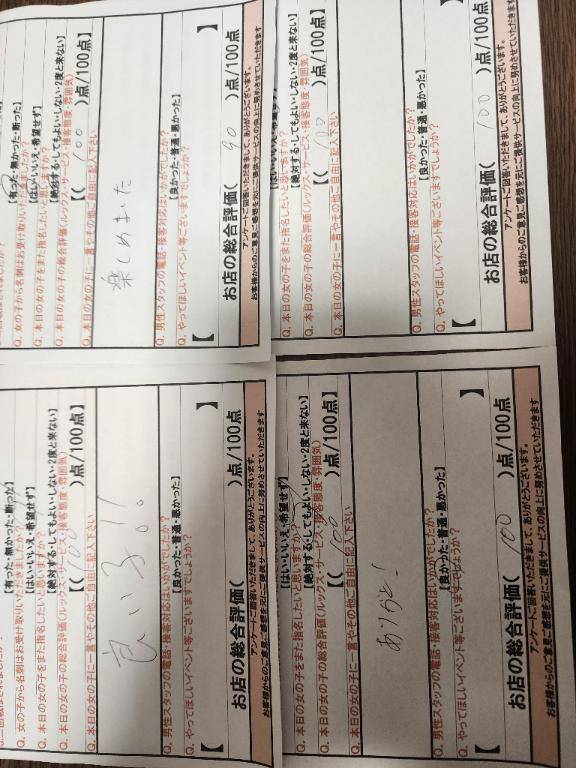 【有った・無かった・断った】
Q. 女の子から名刺はお受け取りいただきましたか?
【はい・いいえ・希望せず】
Q. 本日の女の子をまた指名したいと思いますか?
【絶対する・してもよい・しない・2度と来ない】
Q. 本日の女の子の総合評価(ルックス・サービス・接客態度・雰囲気)
【( 100 )点/100点】
Q. 本日の女の子に一言やその他ご自由に記入下さい
楽しめました
Q. 男性スタッフの電話・接客対応はいかがでしたか?
【良かった・普通・悪かった】
Q. やってほしいイベント等ございますでしょうか?
【 】
お店の総合評価( 90 )点/100点
アンケートに回答いただきまして、ありがとうございます。
お客様からのご意見ご感想を元にご提供サービスの向上に努めさせていただきます
Q. 本日の女の子をまた指名したいと思いますか?
【絶対する・してもよい・しない・2度と来ない】
Q. 本日の女の子の総合評価(ルックス・サービス・接客態度・雰囲気)
【( 100 )点/100点】
Q. 本日の女の子に一言やその他ご自由に記入下さい
Q. 男性スタッフの電話・接客対応はいかがでしたか?
【良かった・普通・悪かった】
Q. やってほしいイベント等ございますでしょうか?
【 】
お店の総合評価( 100 )点/100点
アンケートに回答いただきまして、ありがとうございます。
お客様からのご意見ご感想を元にご提供サービスの向上に努めさせていただきます
【有った・無かった・断った】
Q. 女の子から名刺はお受け取りいただきましたか?
【はい・いいえ・希望せず】
Q. 本日の女の子をまた指名したいと思いますか?
【絶対する・してもよい・しない・2度と来ない】
Q. 本日の女の子の総合評価(ルックス・サービス・接客態度・雰囲気)
【( 100 )点/100点】
Q. 本日の女の子に一言やその他ご自由に記入下さい
良い子!!
Q. 男性スタッフの電話・接客対応はいかがでしたか?
【良かった・普通・悪かった】
Q. やってほしいイベント等ございますでしょうか?
【 】
お店の総合評価( )点/100点
アンケートに回答いただきまして、ありがとうございます。
お客様からのご意見ご感想を元にご提供サービスの向上に努めさせていただきます
【はい・いいえ・希望せず】
Q. 本日の女の子をまた指名したいと思いますか?
【絶対する・してもよい・しない・2度と来ない】
Q. 本日の女の子の総合評価(ルックス・サービス・接客態度・雰囲気)
【( 100 )点/100点】
Q. 本日の女の子に一言やその他ご自由に記入下さい
ありがと!
Q. 男性スタッフの電話・接客対応はいかがでしたか?
【良かった・普通・悪かった】
Q. やってほしいイベント等ございますでしょうか?
【 】
お店の総合評価( 100 )点/100点
アンケートに回答いただきまして、ありがとうございます。
お客様からのご意見ご感想を元にご提供サービスの向上に努めさせていただきます